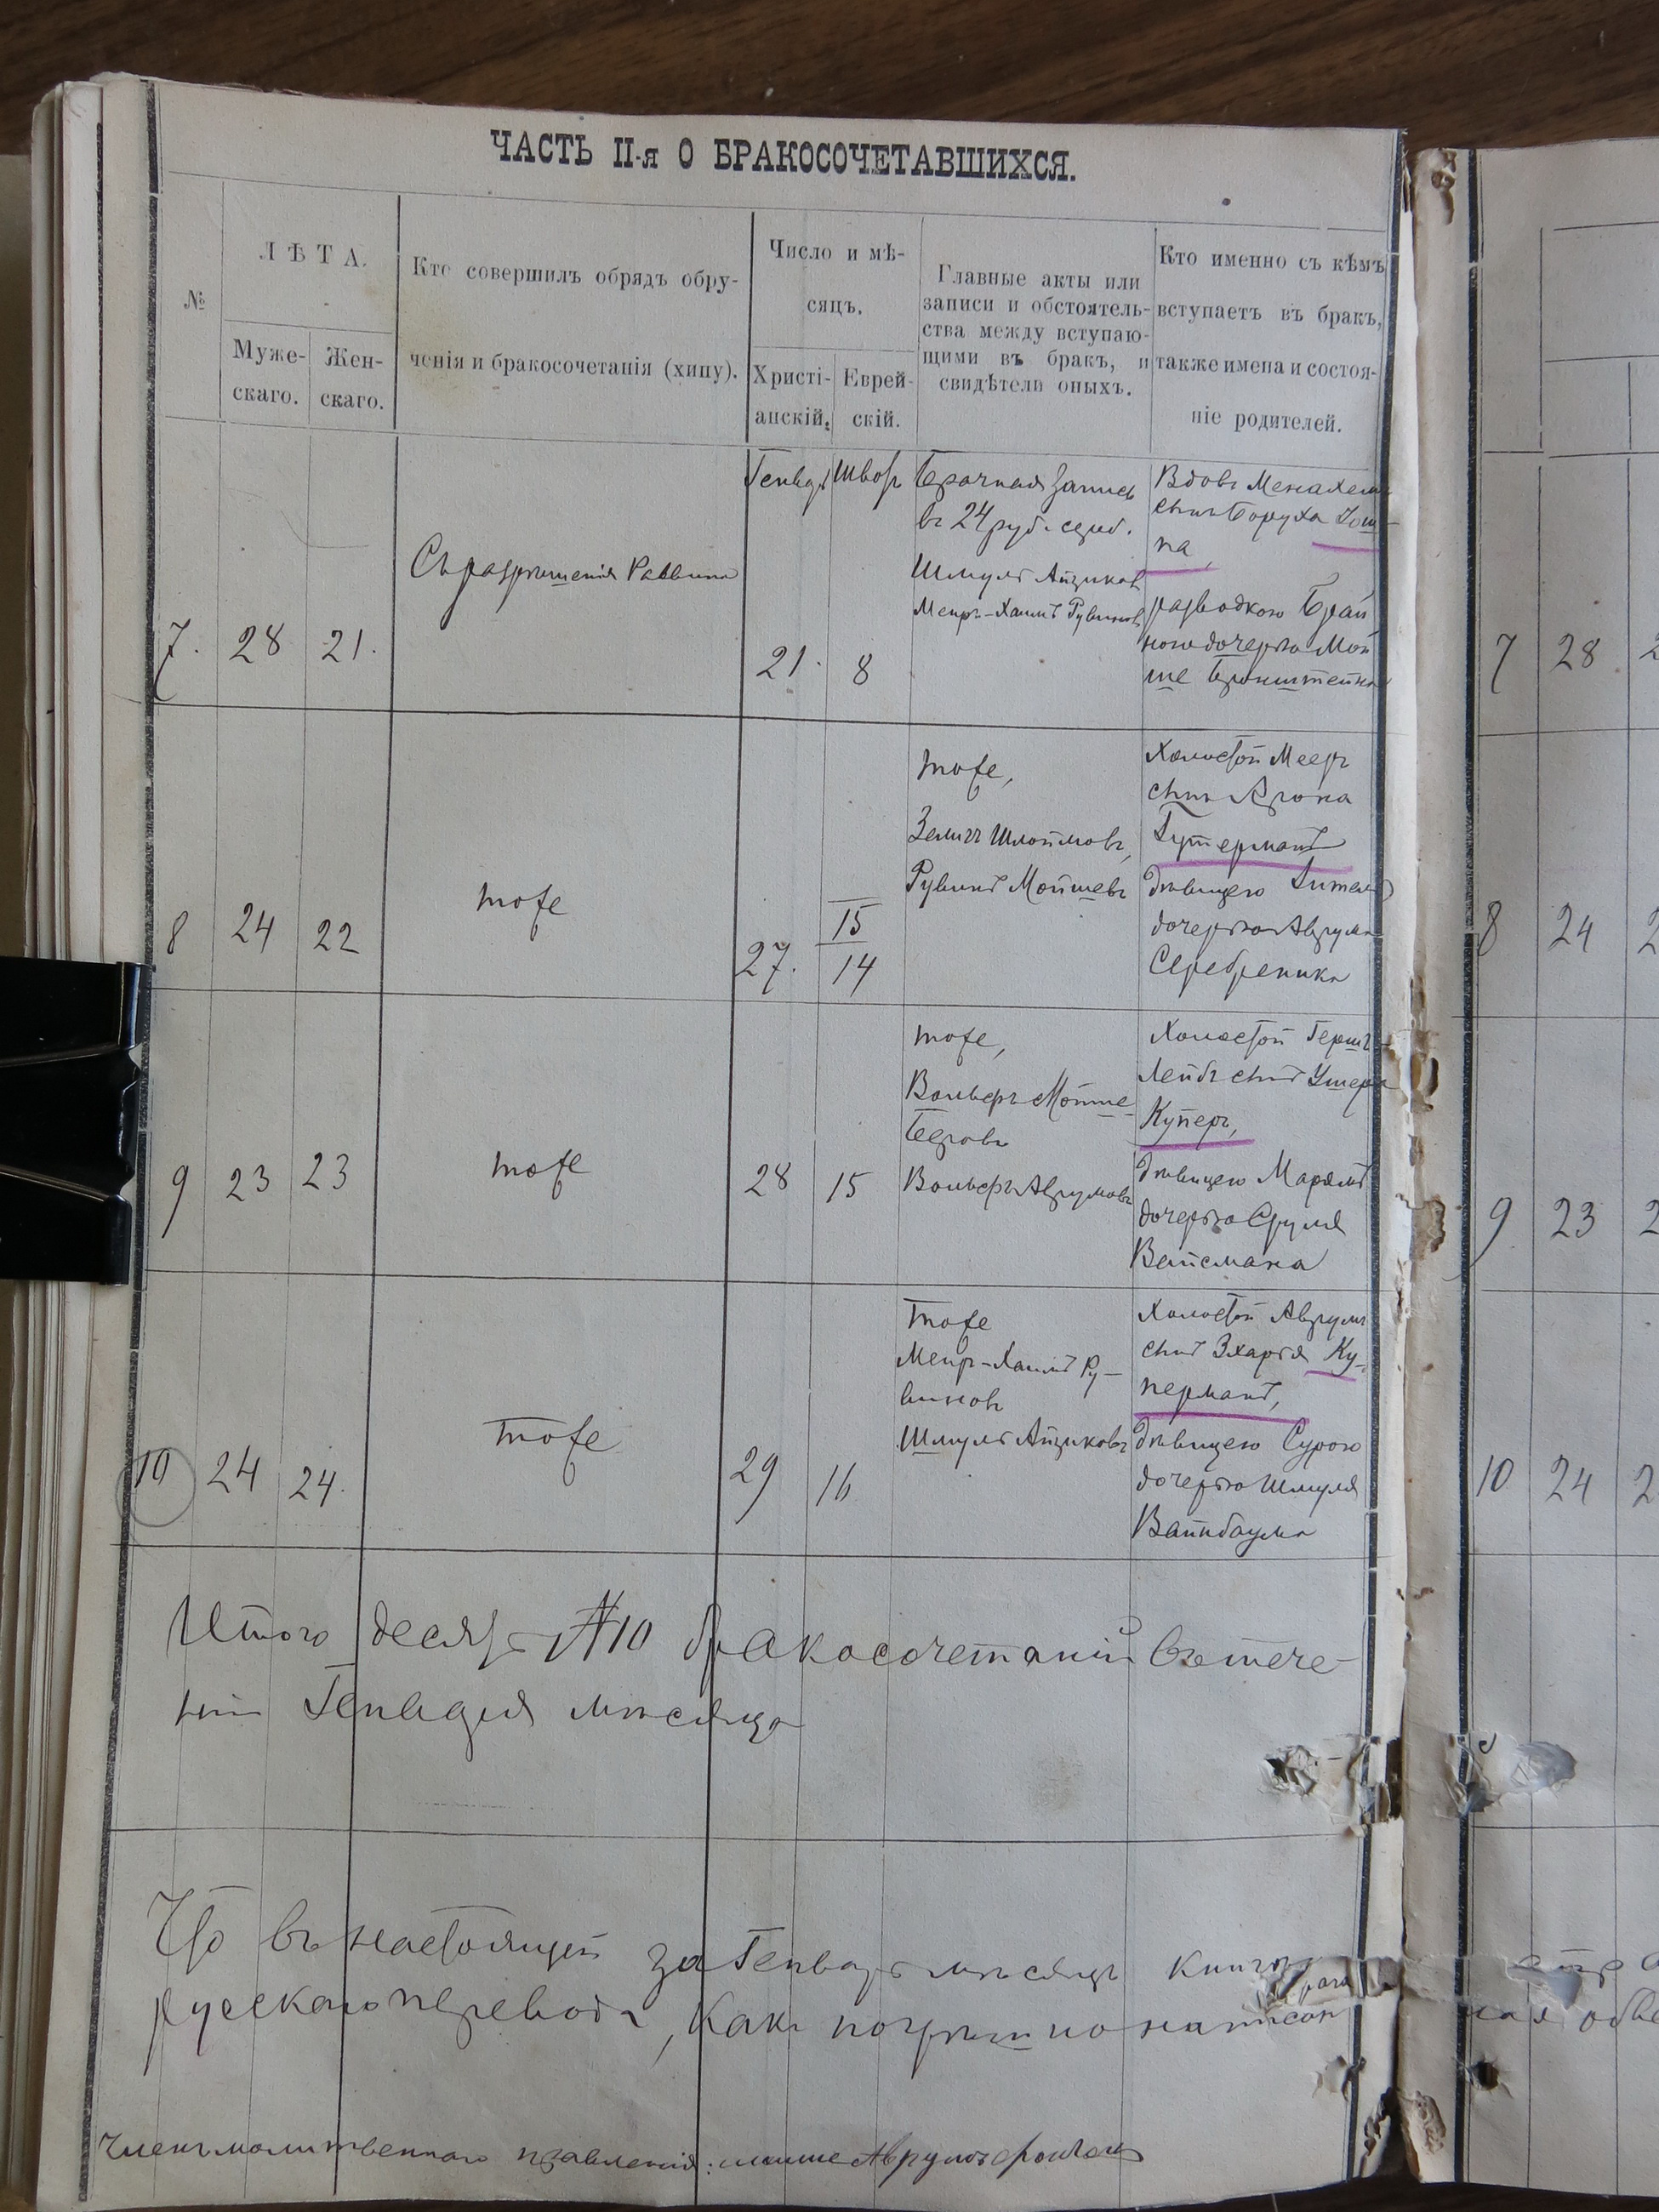 ЧАСТЬ II-я О БРАКОСОЧЕТАВШИХСЯ.
№
ЛѢТА.
Муже-
скаго.
Жен-
скаго.
Кто совершилъ обрядъ обру-
ченія и бракосочетанія (хипу).
Число и мѣ-
сяцъ.
Христі-
анскій.
Еврей-
скій.
Главные акты или
записи и обстоятель-
ства между вступаю-
щими въ бракъ, и
свидѣтели оныхъ.
Кто именно съ кѣмъ
вступаетъ въ бракъ,
также имена и состоя-
ніе родителей.
7. 28 21.
Съ разрѣшенія Раввина
Генваря Шворъ
21. 8
Брачная запись
въ 24 руб. сереб.
Шмуль Айзиковъ
Меиръ-Хаимъ Рувиновъ
Вдовъ Менахемъ
сынъ Боруха
на,
разводкою Брай
ною дочерью Мой
ше Бронштейна
8 24 22
тоже
27. 15
14
тоже,
Зелигъ Шлоймовъ,
Рувинъ Мойшевъ
Холостой Мееръ
сынъ Арона
Гутерманъ
дѣвицею
дочерью Аврума
Серебреника
9 23 23
тоже
28 15
тоже,
Вольфъ Мойше
Беровъ
Вольфъ Аврумовъ
Холостой Гершъ
Лейбъ сынъ Ушера
Куперъ,
дѣвицею Марямъ
дочерью Сруля
Вайсмана
10 24 24.
тоже
29 16
тоже
Меиръ-Хаимъ Ру-
виновъ
Шмуль Айзиковъ
Холостой Аврумъ
сынъ Зхарья Ку-
перманъ,
дѣвицею Сурою
дочерью Шмуля
Вайнбаума
Итого десять №10 бракосочетаній въ тече-
ніи Генваря мѣсяца
Что въ настоящей за Генварь мѣсяцъ книги
русскаго перевода, какъ
Членъ молитвеннаго правленія: Аврумъ
7 28 2
8 24 2
9 23 2
10 24 2